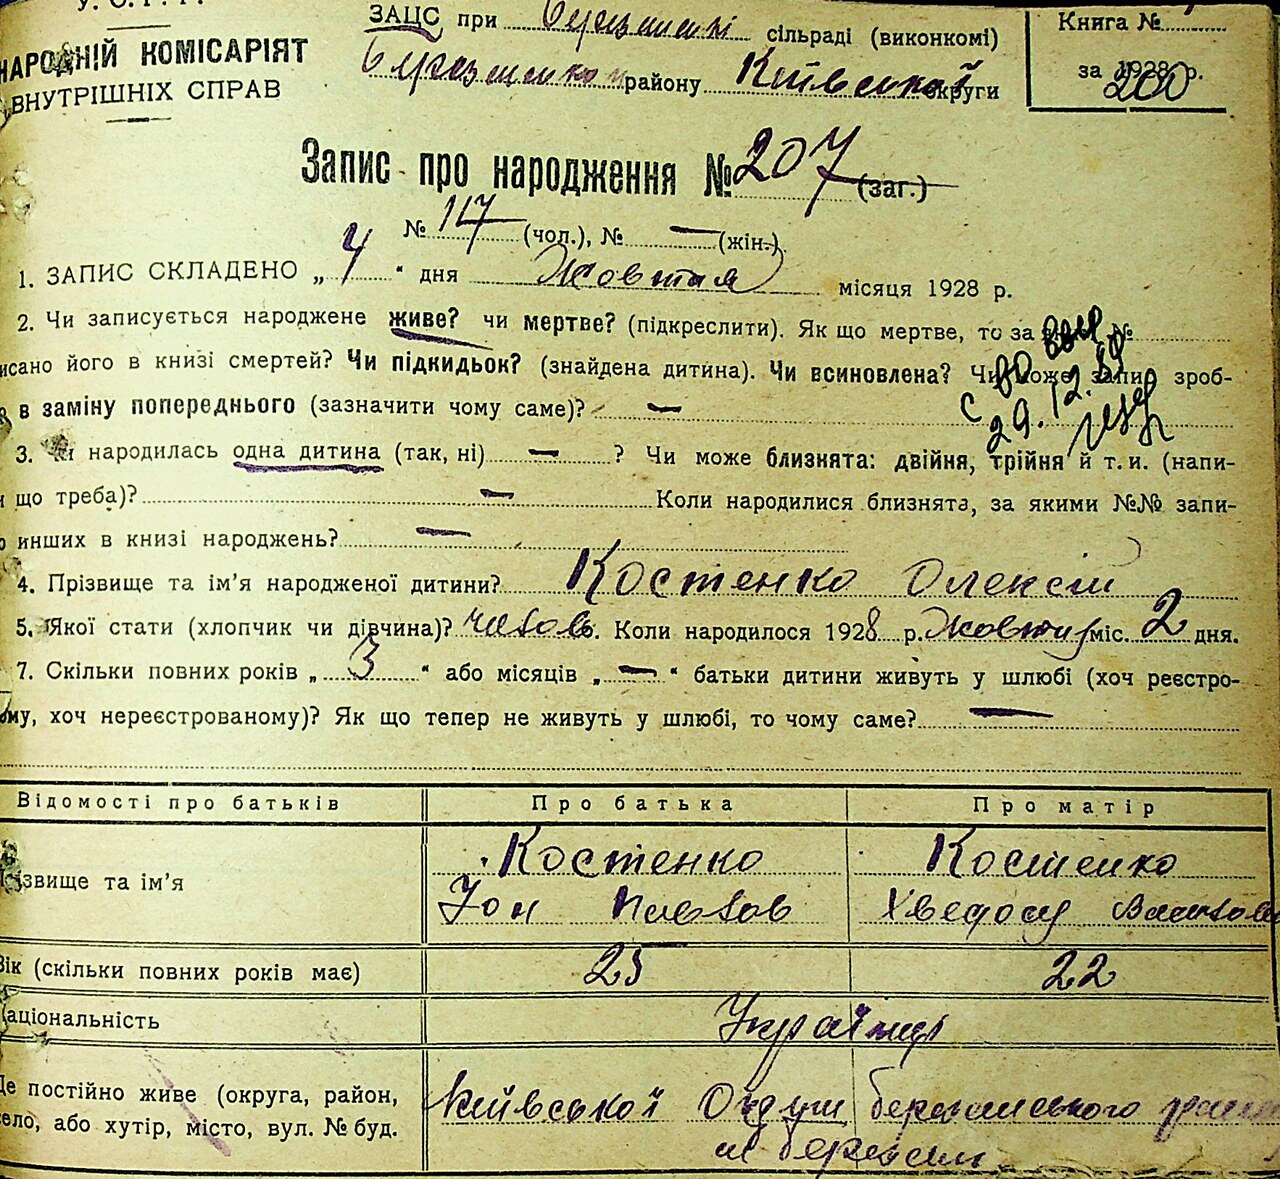 У. С. Р. Р.
НАРОДНІЙ КОМІСАРІЯТ
ВНУТРІШНІХ СПРАВ
ЗАЦС при сільраді (виконкомі)
району Київської округи
Книга №
за 1928 р.
200
Запис про народження № 207 (заг.)
№ 117 (чол.), № — (жін.)
1. ЗАПИС СКЛАДЕНО „ 4 “ дня Жовтня місяця 1928 р.
2. Чи записується народжене живе? чи мертве? (підкреслити). Як що мертве, то за №
исано його в книзі смертей? Чи підкидьок? (знайдена дитина). Чи всиновлена? Чи може запис зроб-
в заміну попереднього (зазначити чому саме)? —
29.12.
3. Чи народилась одна дитина (так, ні) — ? Чи може близнята: двійня, трійня й т. и. (напи-
що треба)? — Коли народилися близнята, за якими №№ запи-
инших в книзі народжень? —
4. Прізвище та ім’я народженої дитини? Костенко Олексій
5. Якої стати (хлопчик чи дівчина)? 6. Коли народилося 1928 р. Жовтня міс. 2 дня.
7. Скільки повних років „ 3 “ або місяців „ — “ батьки дитини живуть у шлюбі (хоч реєстро-
му, хоч нереєстрованому)? Як що тепер не живуть у шлюбі, то чому саме? —
Відомості про батьків Про батька Про матір
Прізвище та ім’я Костенко Костенко
Йон Павлов
Вік (скільки повних років має) 25 22
Національність Українці
Де постійно живе (округа, район, Київської Округи
село, або хутір, місто, вул. № буд.